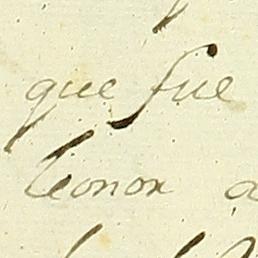 que fue
Leonor a